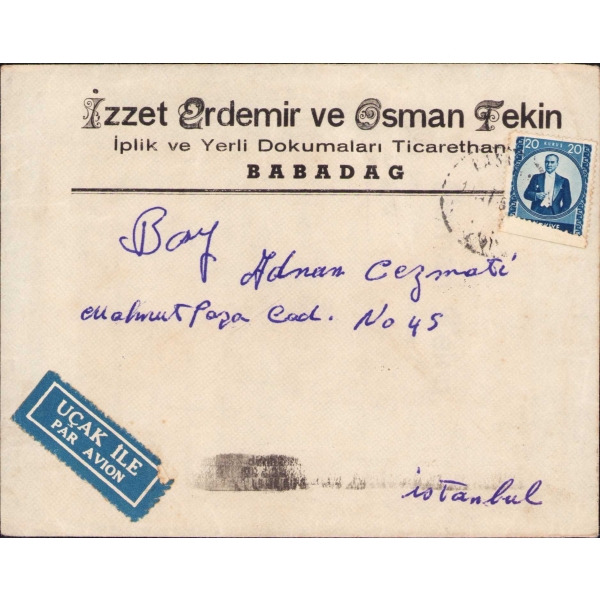 İzzet Erdemir ve Osman Tekin
İplik ve Yerli Dokumaları Ticarethan
BABADAG
20 KURUŞ 20
Bay
Adnan Cezmati
Mahmutpaşa Cad. No 45
UÇAK İLE
PAR AVION
istanbul